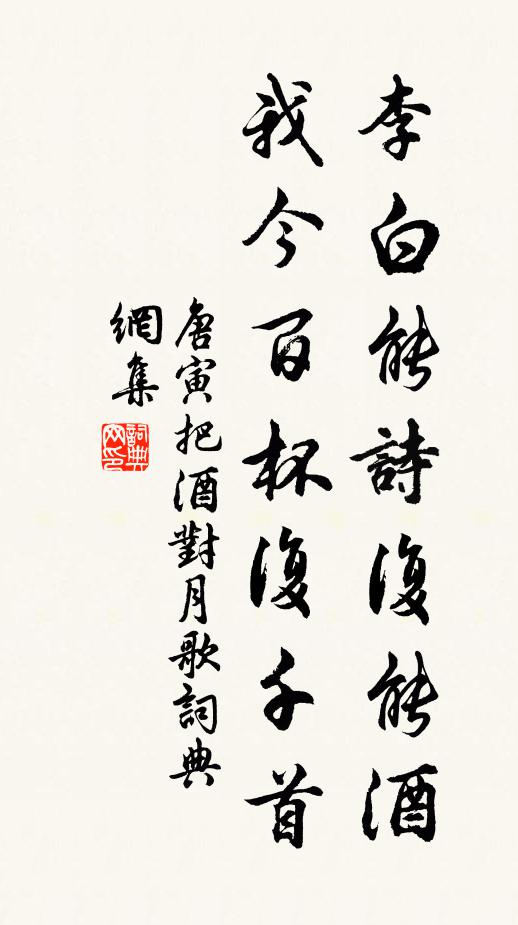 李白能詩復能酒
我今百杯復千首
唐寅把酒對月歌詞典
網集
詞典
网印